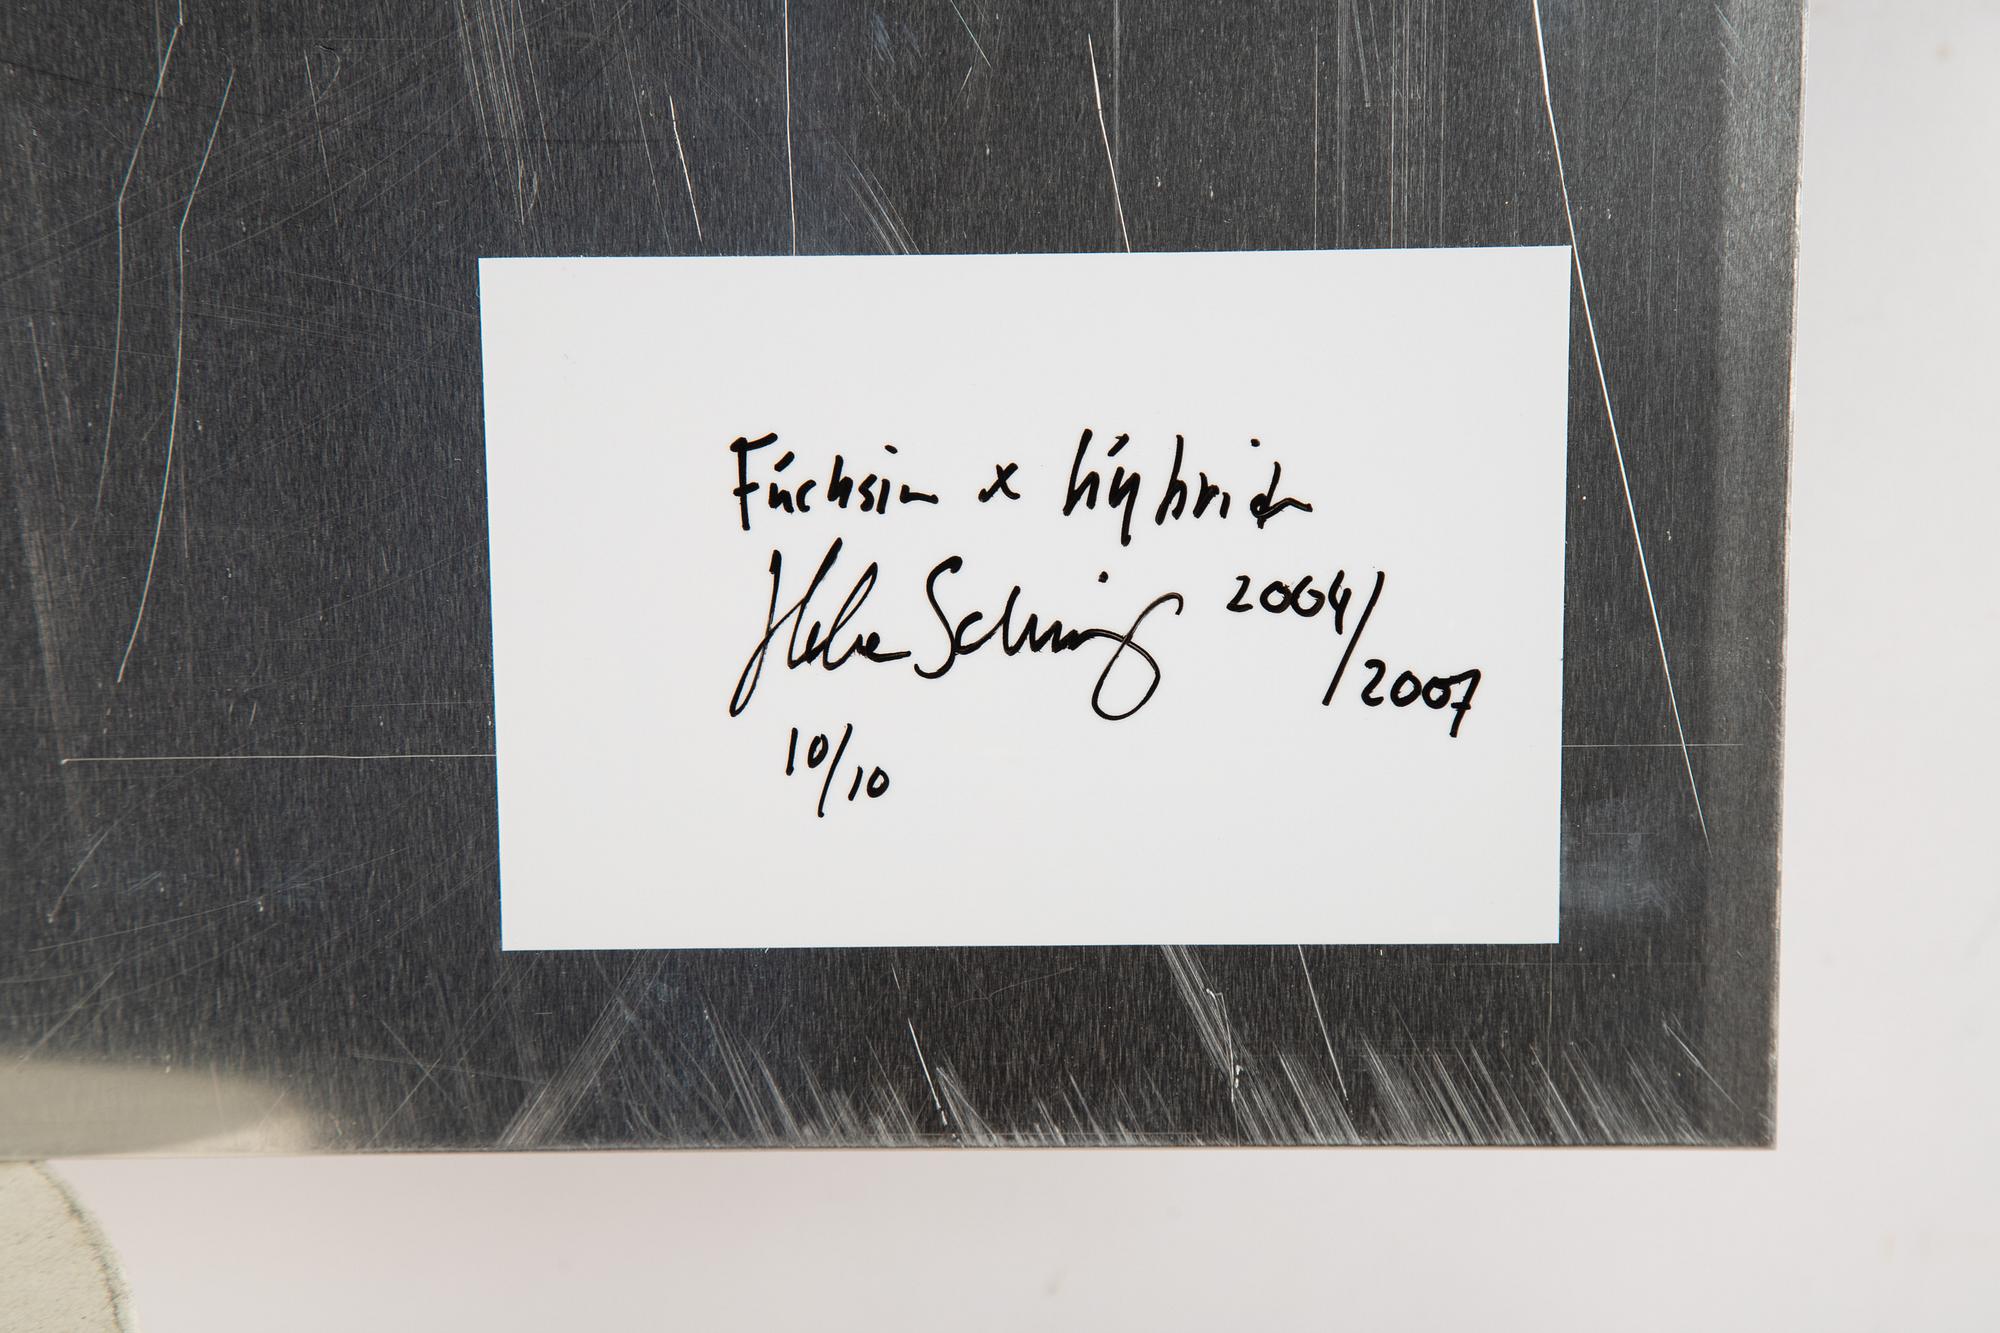 Fuchsia x hybrida
Heike Schwing 2004/2007
10/10